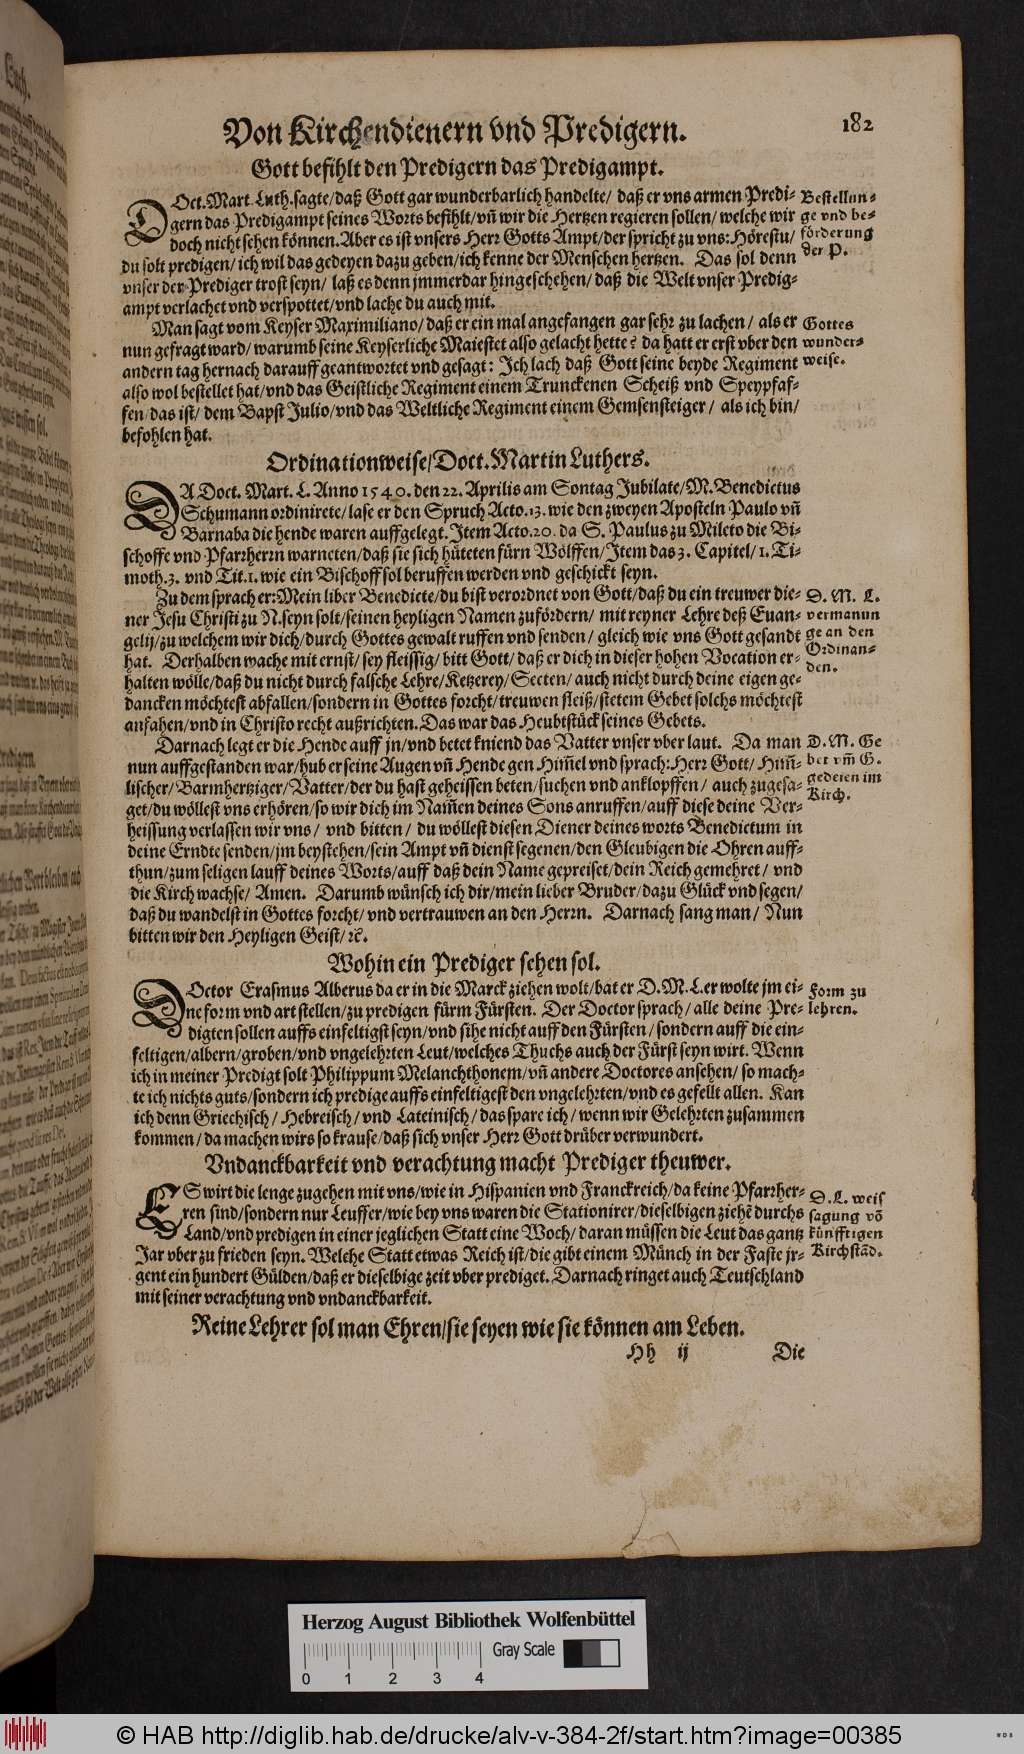 Von Kirchendienern vnd Predigern.
182
Gott befihlt den Predigern das Predigampt.
DOct. Mart. Luth. sagte/ daß Gott gar wunderbarlich handelte/ daß er vns armen Predi-
gern das Predigampt seines Worts befihlt/ vñ wir die Hertzen regieren sollen/ welche wir
doch nicht sehen können. Aber es ist vnsers Herr Gotts Ampt/ der spricht zu vns: Hörestu/
du solt predigen/ ich wil das gedeyen dazu geben/ ich kenne der Menschen hertzen. Das sol denn
vnser der Prediger trost seyn/ laß es denn immerdar hingeschehen/ daß die Welt vnser Predig-
ampt verlachet vnd verspottet/ vnd lache du auch mit.
Bestellun-
ge vnd be-
förderung
der P.
Man sagt vom Keyser Maximiliano/ daß er ein mal angefangen gar sehr zu lachen/ als er
nun gefragt ward/ warumb seine Keyserliche Maiestet also gelacht hette? da hatt er erst vber den
andern tag hernach darauff geantwortet vnd gesagt: Ich lach daß Gott seine beyde Regiment
also wol bestellet hat/ vnd das Geistliche Regiment einem Trunckenen Scheiß vnd Speypfaf-
fen/ das ist/ dem Bapst Julio/ vnd das Weltliche Regiment einem Gemsensteiger/ als ich bin/
befohlen hat.
Gottes
wunder-
weise.
Ordinationweise/ Doct. Martin Luthers.
DA Doct. Mart. L. Anno 1540. den 22. Aprilis am Sontag Jubilate/ M. Benedictus
Schumann ordinirete/ lase er den Spruch Acto. 13. wie den zweyen Aposteln Paulo vñ
Barnaba die hende waren auffgelegt. Item Acto. 20. da S. Paulus zu Mileto die Bi-
schoffe vnd Pfarherrn warneten/ daß sie sich hüteten fürn Wölffen/ Item das 3. Capitel/ 1. Ti-
moth. 3. vnd Tit. 1. wie ein Bischoff sol beruffen werden vnd geschickt seyn.
Zu dem sprach er: Mein liber Benedicte/ du bist verordnet von Gott/ daß du ein treuwer die-
ner Jesu Christi zu N. seyn solt/ seinen heyligen Namen zufördern/ mit reyner Lehre deß Euan-
gelij/ zu welchem wir dich/ durch Gottes gewalt ruffen vnd senden/ gleich wie vns Gott gesandt
hat. Derhalben wache mit ernst/ sey fleissig/ bitt Gott/ daß er dich in dieser hohen Vocation er-
halten wölle/ daß du nicht durch falsche Lehre/ Ketzerey/ Secten/ auch nicht durch deine eigen ge-
dancken möchtest abfallen/ sondern in Gottes forcht/ treuwen fleiß/ stetem Gebet solchs möchtest
anfahen/ vnd in Christo recht außrichten. Das war das Heubtstück seines Gebets.
D. M. L.
vermanun
ge an den
Ordinan-
den.
Darnach legt er die Hende auff jn/ vnd betet kniend das Vatter vnser vber laut. Da man
nun auffgestanden war/ hub er seine Augen vñ Hende gen Him̃el vnd sprach: Herr Gott/ Him̃-
lischer/ Barmhertziger/ Vatter/ der du hast geheissen beten/ suchen vnd anklopffen/ auch zugesa-
get/ du wöllest vns erhören/ so wir dich im Nam̃en deines Sons anruffen/ auff diese deine Ver-
heissung verlassen wir vns/ vnd bitten/ du wöllest diesen Diener deines worts Benedictum in
deine Erndte senden/ jm beystehen/ sein Ampt vñ dienst segenen/ den Gleubigen die Ohren auff-
thun/ zum seligen lauff deines Worts/ auff daß dein Name gepreiset/ dein Reich gemehret/ vnd
die Kirch wachse/ Amen. Darumb wünsch ich dir/ mein lieber Bruder/ dazu Glück vnd segen/
daß du wandelst in Gottes forcht/ vnd vertrauwen an den Herrn. Darnach sang man/ Nun
bitten wir den Heyligen Geist/ ꝛc.
D. M. Ge
bet vm̃ G.
gedeien im
Kirch.
Wohin ein Prediger sehen sol.
DOctor Erasmus Alberus da er in die Marck ziehen wolt/ bat er D. M. L. er wolte jm ei-
ne form vnd art stellen/ zu predigen fürm Fürsten. Der Doctor sprach/ alle deine Pre-
digten sollen auffs einfeltigst seyn/ vnd sihe nicht auff den Fürsten/ sondern auff die ein-
feltigen/ albern/ groben/ vnd vngelehrten Leut/ welches Thuchs auch der Fürst seyn wirt. Wenn
ich in meiner Predigt solt Philippum Melanchthonem/ vñ andere Doctores ansehen/ so mach-
te ich nichts guts/ sondern ich predige auffs einfeltigest den vngelehrten/ vnd es gefellt allen. Kan
ich denn Griechisch/ Hebreisch/ vnd Lateinisch/ das spare ich/ wenn wir Gelehrten zusammen
kommen/ da machen wirs so krause/ daß sich vnser Herr Gott drüber verwundert.
Form zu
lehren.
Vndanckbarkeit vnd verachtung macht Prediger theuwer.
ES wirt die lenge zugehen mit vns/ wie in Hispanien vnd Franckreich/ da keine Pfarrher-
ren sind/ sondern nur Leuffer/ wie bey vns waren die Stationirer/ dieselbigen ziehẽ durchs
Land/ vnd predigen in einer jeglichen Statt eine Woch/ daran müssen die Leut das gantz
Jar vber zu frieden seyn. Welche Statt etwas Reich ist/ die gibt einem Münch in der Faste jr-
gent ein hundert Gülden/ daß er dieselbige zeit vber prediget. Darnach ringet auch Teutschland
mit seiner verachtung vnd vndanckbarkeit.
D. L. weis
sagung võ
künfftigen
Kirchstãd.
Reine Lehrer sol man Ehren/ sie seyen wie sie können am Leben.
Hh ij
Die
Herzog August Bibliothek Wolfenbüttel
Gray Scale
0 1 2 3 4
© HAB http://diglib.hab.de/drucke/alv-v-384-2f/start.htm?image=00385